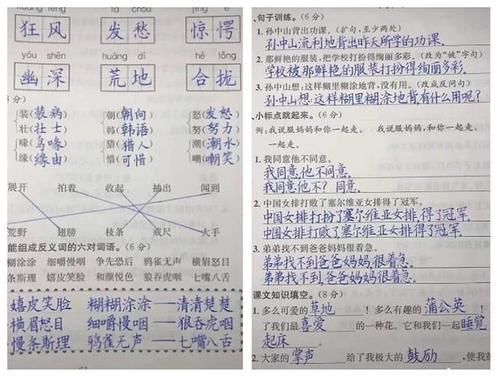 狂风 发愁 惊愕
yōu shēn huāng dì hé lǒng
幽深 荒地 合拢
分）
装（装病） 朝（朝向） 怒（发怒）
壮（壮士） 韩（韩语） 努（努力）
喙（鸟喙） 猎（猎人） 潮（潮水）
缘（缘由） 惜（可惜） 嘲（嘲笑）
展开 拍着 收起 抽出 闻到
荒野 翅膀 枝条 戒尺 大手
能组成反义词的六对词语。（6分）
糊涂涂 细嚼慢咽 争先恐后 鸦雀无声 横眉怒目
条斯理 嬉皮笑脸 和颜悦色 狼吞虎咽 七嘴八舌
嬉皮笑脸 糊糊涂涂——清清楚楚
横眉怒目 细嚼慢咽——狼吞虎咽
慢条斯理 鸦雀无声——七嘴八舌
、句子训练。（6分）
1. 孙中山背出功课。（扩句，至少两处）
孙中山流利地背出昨天所学的功课.
2. 那鲜艳的服装，把学校打扮得绚丽多彩。（改为“被”字句）
学校被那鲜艳的服装打扮得绚丽多彩.
3. 孙中山想，这样糊里糊涂地背，没有用。（改成反问句）
孙中山想，这样糊里糊涂地背有什么用呢？
小标点跳起来。（6分）
例：我说服妈妈和你一起走。 我说服，妈妈和你一起走。
1. 我同意他不同意。
我同意，他不同意.
我同意他不？同意.
2. 中国女排打败了塞尔维亚女排得了冠军。
中国女排打扮了塞尔维亚女排，得了冠军
中国女排打败了，塞尔维亚女排得了冠军.
3. 弟弟找不到爸爸妈妈很着急。
弟弟找不到爸爸，妈妈很着急.
弟弟找不到爸爸妈妈，很着急.
课文知识填空。（8分）
1. 多么可爱的草地！多么有趣的蒲公英！
了我们最喜爱的一种花。它和我们一起睡觉
起床。
2. 大家的掌声给了我极大的鼓励，使我